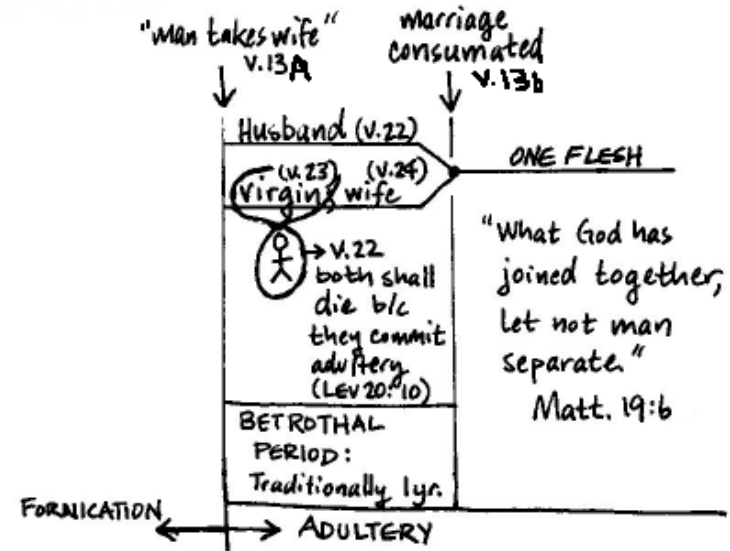 "man takes wife"
v.13A
marriage
consumated
v.13b
Husband (v.22)
(v.23) (v.24)
virgin; wife
ONE FLESH
v.22
both shall
die b/c
they commit
adultery
(LEV 20:10)
"What God has
joined together,
let not man
separate."
Matt. 19:6
BETROTHAL
PERIOD:
Traditionally 1yr.
FORNICATION
ADULTERY